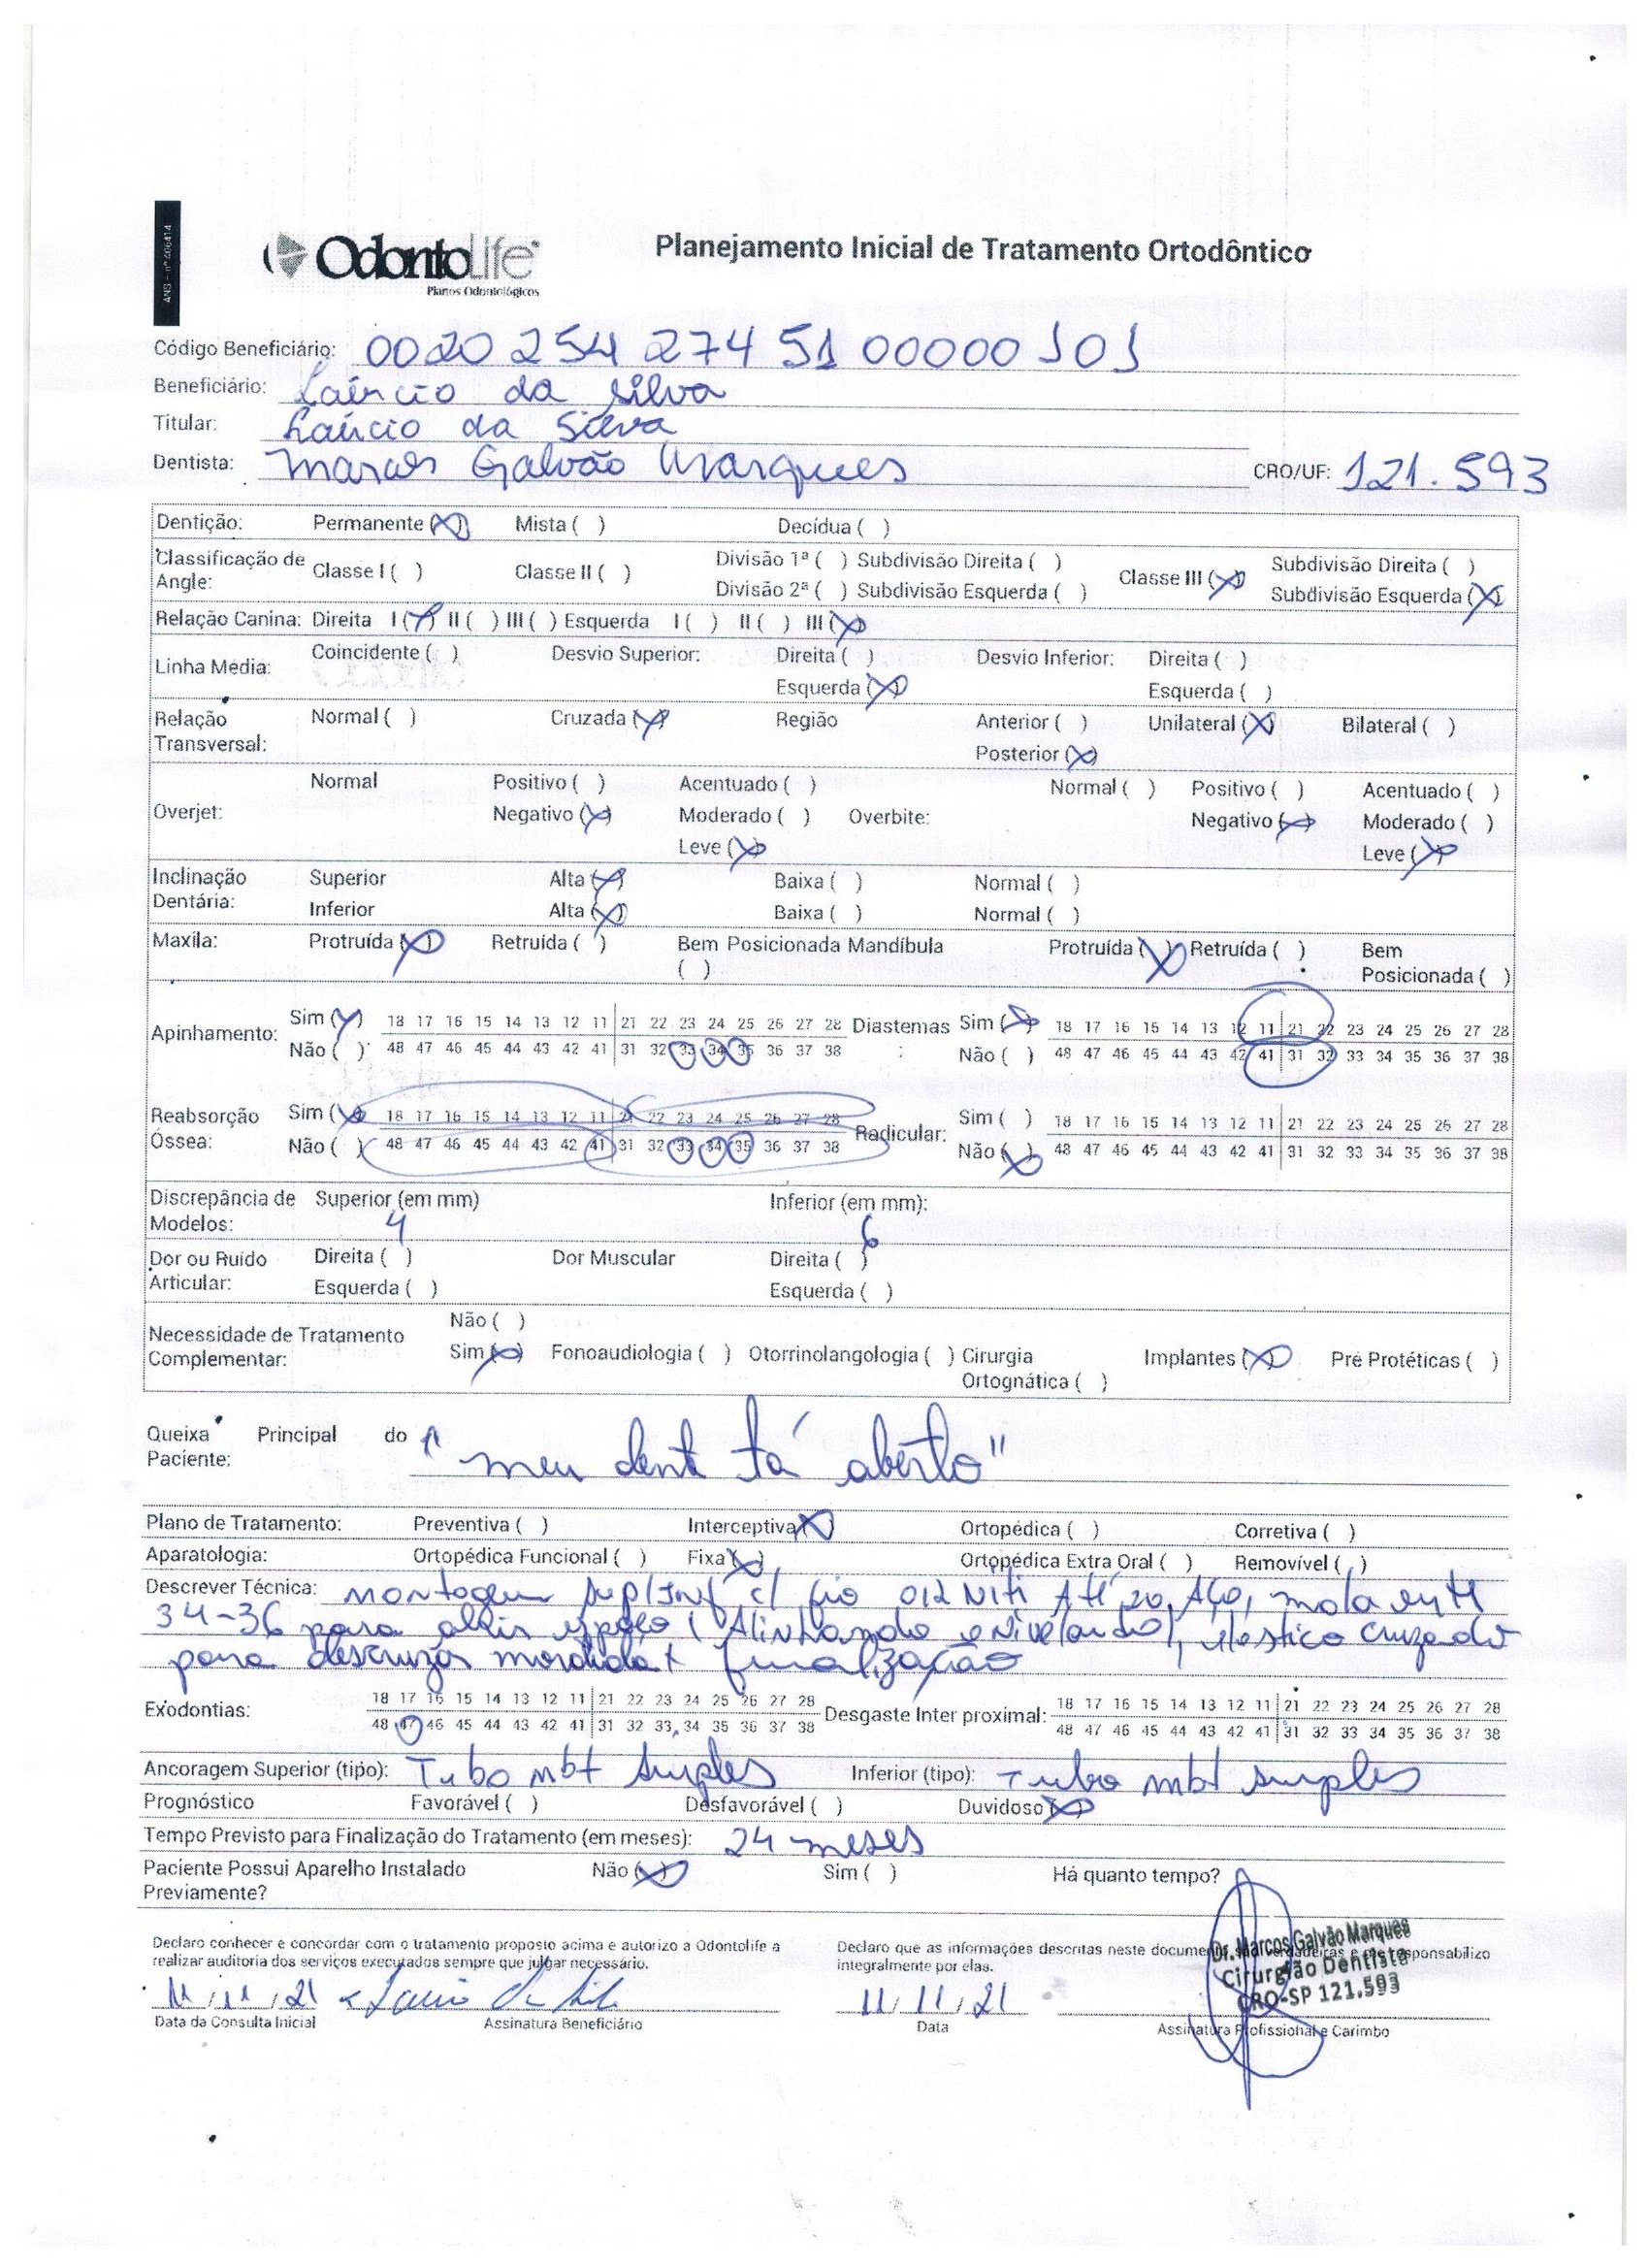 ANS - nº 406414
OdontoLife
Planos Odontológicos
Planejamento Inicial de Tratamento Ortodôntico
Código Beneficiário: 0020 254 274 51 00000 101
Beneficiário: Laércio da Silva
Titular: Laércio da Silva
Dentista: Marcos Galvão Marques CRO/UF: 121.593
Dentição: Permanente (X) Mista ( ) Decídua ( )
Classificação de Angle: Classe I ( ) Classe II ( ) Divisão 1ª ( ) Subdivisão Direita ( ) Classe III (X) Subdivisão Direita ( )
Divisão 2ª ( ) Subdivisão Esquerda ( ) Subdivisão Esquerda (X)
Relação Canina: Direita I (X) II ( ) III ( ) Esquerda I ( ) II ( ) III (X)
Linha Média: Coincidente ( ) Desvio Superior: Direita ( ) Desvio Inferior: Direita ( )
Esquerda (X) Esquerda ( )
Relação Transversal: Normal ( ) Cruzada (X) Região Anterior ( ) Unilateral (X) Bilateral ( )
Posterior (X)
Normal Positivo ( ) Acentuado ( ) Normal ( ) Positivo ( ) Acentuado ( )
Overjet: Negativo (X) Moderado ( ) Overbite: Negativo (X) Moderado ( )
Leve (X) Leve (X)
Inclinação Dentária: Superior Alta (X) Baixa ( ) Normal ( )
Inferior Alta (X) Baixa ( ) Normal ( )
Maxila: Protruída (X) Retruída ( ) Bem Posicionada ( ) Mandíbula Protruída (X) Retruída ( ) Bem Posicionada ( )
Apinhamento: Sim (X) 18 17 16 15 14 13 12 11 21 22 23 24 25 26 27 28 Diastemas: Sim (X) 18 17 16 15 14 13 12 11 21 22 23 24 25 26 27 28
Não ( ) 48 47 46 45 44 43 42 41 31 32 33 34 35 36 37 38 Não ( ) 48 47 46 45 44 43 42 41 31 32 33 34 35 36 37 38
Reabsorção Óssea: Sim (X) 18 17 16 15 14 13 12 11 21 22 23 24 25 26 27 28 Radicular: Sim ( ) 18 17 16 15 14 13 12 11 21 22 23 24 25 26 27 28
Não ( ) 48 47 46 45 44 43 42 41 31 32 33 34 35 36 37 38 Não (X) 48 47 46 45 44 43 42 41 31 32 33 34 35 36 37 38
Discrepância de Modelos: Superior (em mm) 4 Inferior (em mm): 6
Dor ou Ruído Articular: Direita ( ) Dor Muscular Direita ( )
Esquerda ( ) Esquerda ( )
Não ( )
Necessidade de Tratamento Complementar: Sim (X) Fonoaudiologia ( ) Otorrinolangologia ( ) Cirurgia Ortognática ( ) Implantes (X) Pré Protéticas ( )
Queixa Principal do Paciente: "meu dente tá aberto"
Plano de Tratamento: Preventiva ( ) Interceptiva (X) Ortopédica ( ) Corretiva ( )
Aparatologia: Ortopédica Funcional ( ) Fixa (X) Ortopédica Extra Oral ( ) Removível ( )
Descrever Técnica: montagem sup/inf c/ fio 012 Niti Até 20 Aço, mola entre
34-36 para abrir espaço ( Alinhando e nivelando), elastico cruzado
para descruzar mordida + finalização
Exodontias: 18 17 16 15 14 13 12 11 21 22 23 24 25 26 27 28 Desgaste Inter proximal: 18 17 16 15 14 13 12 11 21 22 23 24 25 26 27 28
48 47 46 45 44 43 42 41 31 32 33 34 35 36 37 38 48 47 46 45 44 43 42 41 31 32 33 34 35 36 37 38
Ancoragem Superior (tipo): Tubo mbt simples Inferior (tipo): Tubo mbt simples
Prognóstico Favorável ( ) Desfavorável ( ) Duvidoso (X)
Tempo Previsto para Finalização do Tratamento (em meses): 24 meses
Paciente Possui Aparelho Instalado Previamente? Não (X) Sim ( ) Há quanto tempo?
Declaro conhecer e concordar com o tratamento proposto acima e autorizo a Odontolife a realizar auditoria dos serviços executados sempre que julgar necessário.
Declaro que as informações descritas neste documento são verdadeiras e me responsabilizo integralmente por elas.
Dr. Marcos Galvão Marques
Cirurgião Dentista
CRO-SP 121.593
11/11/21 11/11/21
Data da Consulta Inicial Assinatura Beneficiário Data Assinatura Profissional e Carimbo